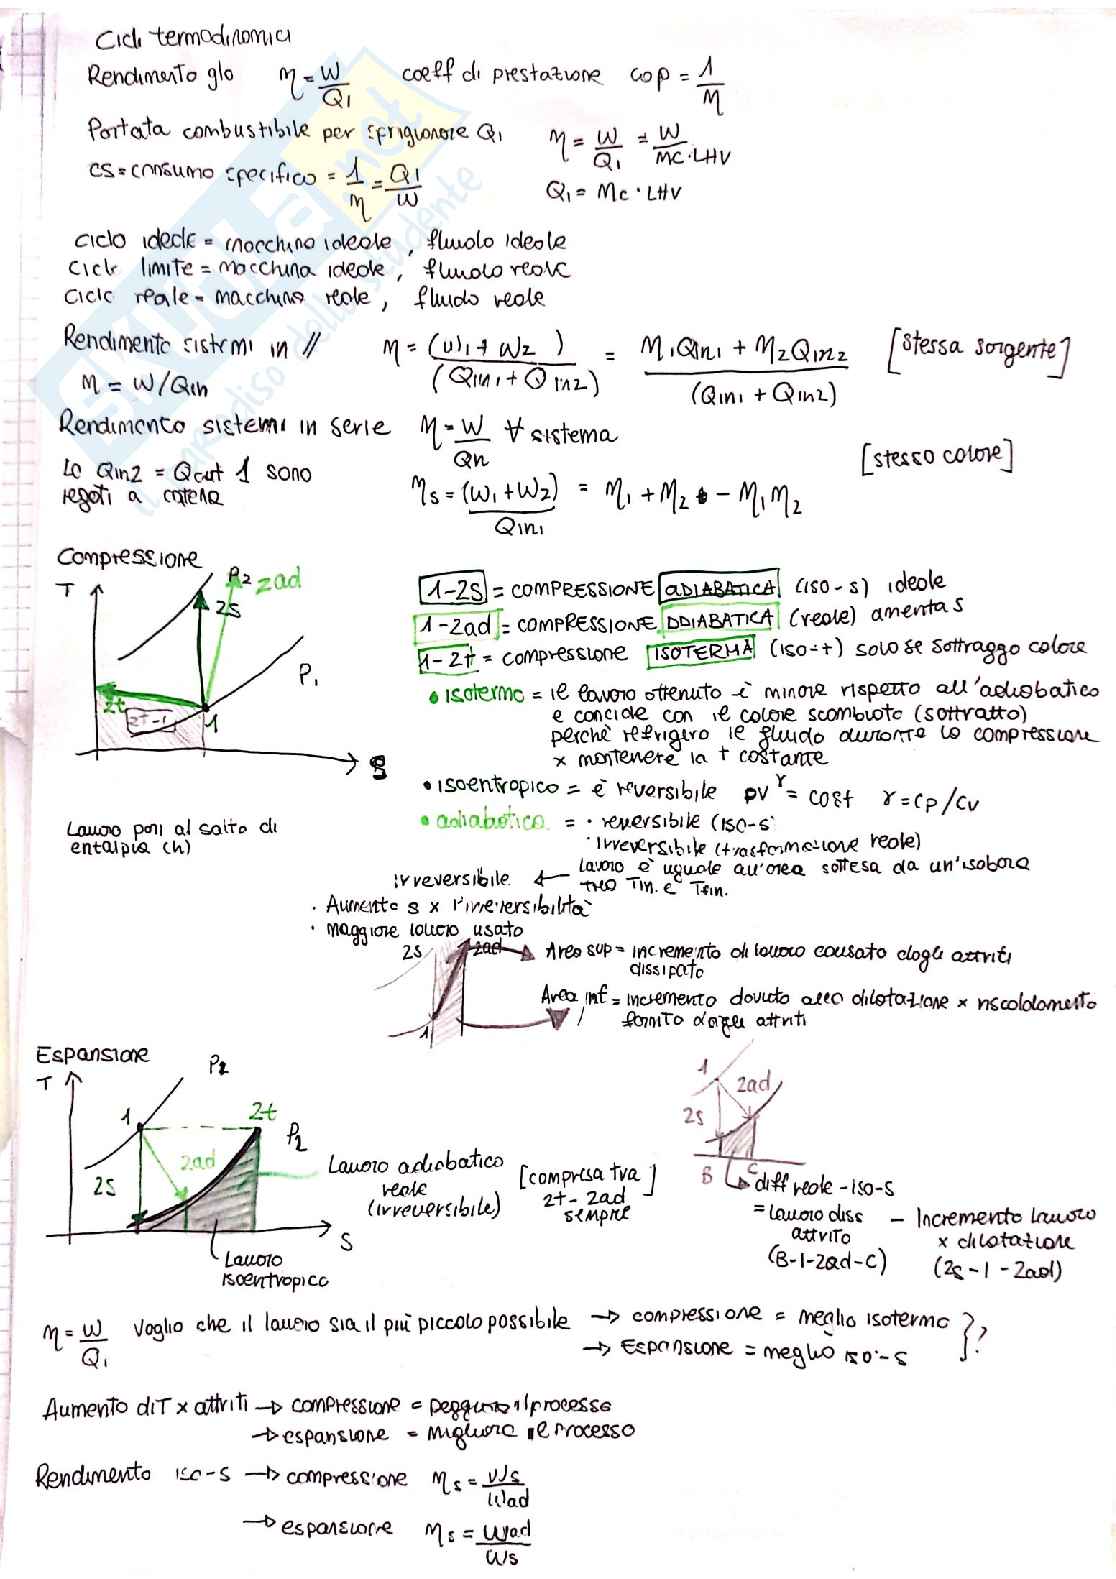 Cicli termodinamici
Rendimento glo η = W/Q1 coeff di prestazione cop = 1/η
Portata combustibile per sprigionare Q1 η = W/Q1 = W/Mc·LHV
cs = consumo specifico = 1/η = Q1/W Q1 = Mc·LHV
ciclo ideale = macchina ideale, fluido ideale
ciclo limite = macchina ideale, fluido reale
ciclo reale = macchina reale, fluido reale
Rendimento sistemi in // η = (W1 + W2)/(Qin1 + Qin2) = η1Qin1 + η2Qin2/(Qin1 + Qin2) [stessa sorgente]
η = W/Qin
Rendimento sistemi in serie η = W/Qin ∀ sistema
La Qin2 = Qout 1 sono legati a catena [stesso calore]
ηs = (W1+W2)/Qin1 = η1 + η2 - η1η2
Compressione
T P2 2ad 2S P1 2t 2t-1 1 S
1-2S = COMPRESSIONE ADIABATICA (iso-s) ideale
1-2ad = COMPRESSIONE ADIABATICA (reale) aumenta S
1-2t = compressione ISOTERMA (iso-t) solo se sottraggo calore
• isoterma = il lavoro ottenuto è minore rispetto all'adiabatica
e concide con il calore scambiato (sottratto)
perchè refrigero il fluido durante la compressione
x mantenere la t costante
• isoentropica = è reversibile pv^γ = cost γ = cp/cv
• adiabatica = · reversibile (iso-s)
· irreversibile (trasformazione reale)
Lavoro pari al salto di
entalpia (h)
irreversibile ← lavoro è uguale all'area sottesa da un'isobara
tra Tin. e Tfin.
· Aumento s x l'irreversibilità
· maggiore lavoro usato
2S 2ad 1
Area sup = incremento di lavoro causato dagli attriti
dissipato
Area inf = incremento dovuto alla dilatazione x riscaldamento
fornito dagli attriti
Espansione
T P2 1 2t P2 2ad 2S S
Lavoro adiabatico
reale
(irreversibile)
[compresa tra
2t - 2ad
sempre]
Lavoro
isoentropico
1 2ad 2S B C
diff reale - iso-s
= lavoro diss
attrito
(B-1-2ad-C)
- Incremento lavoro
x dilatazione
(2s-1-2ad)
η = W/Q1 Voglio che il lavoro sia il più piccolo possibile → compressione = meglio isoterma
→ Espansione = meglio iso-s }?
Aumento di T x attriti → compressione = peggiora il processo
→ espansione = migliora il processo
Rendimento iso-s → compressione ηs = Ws/Wad
→ espansione ηs = Wad/Ws